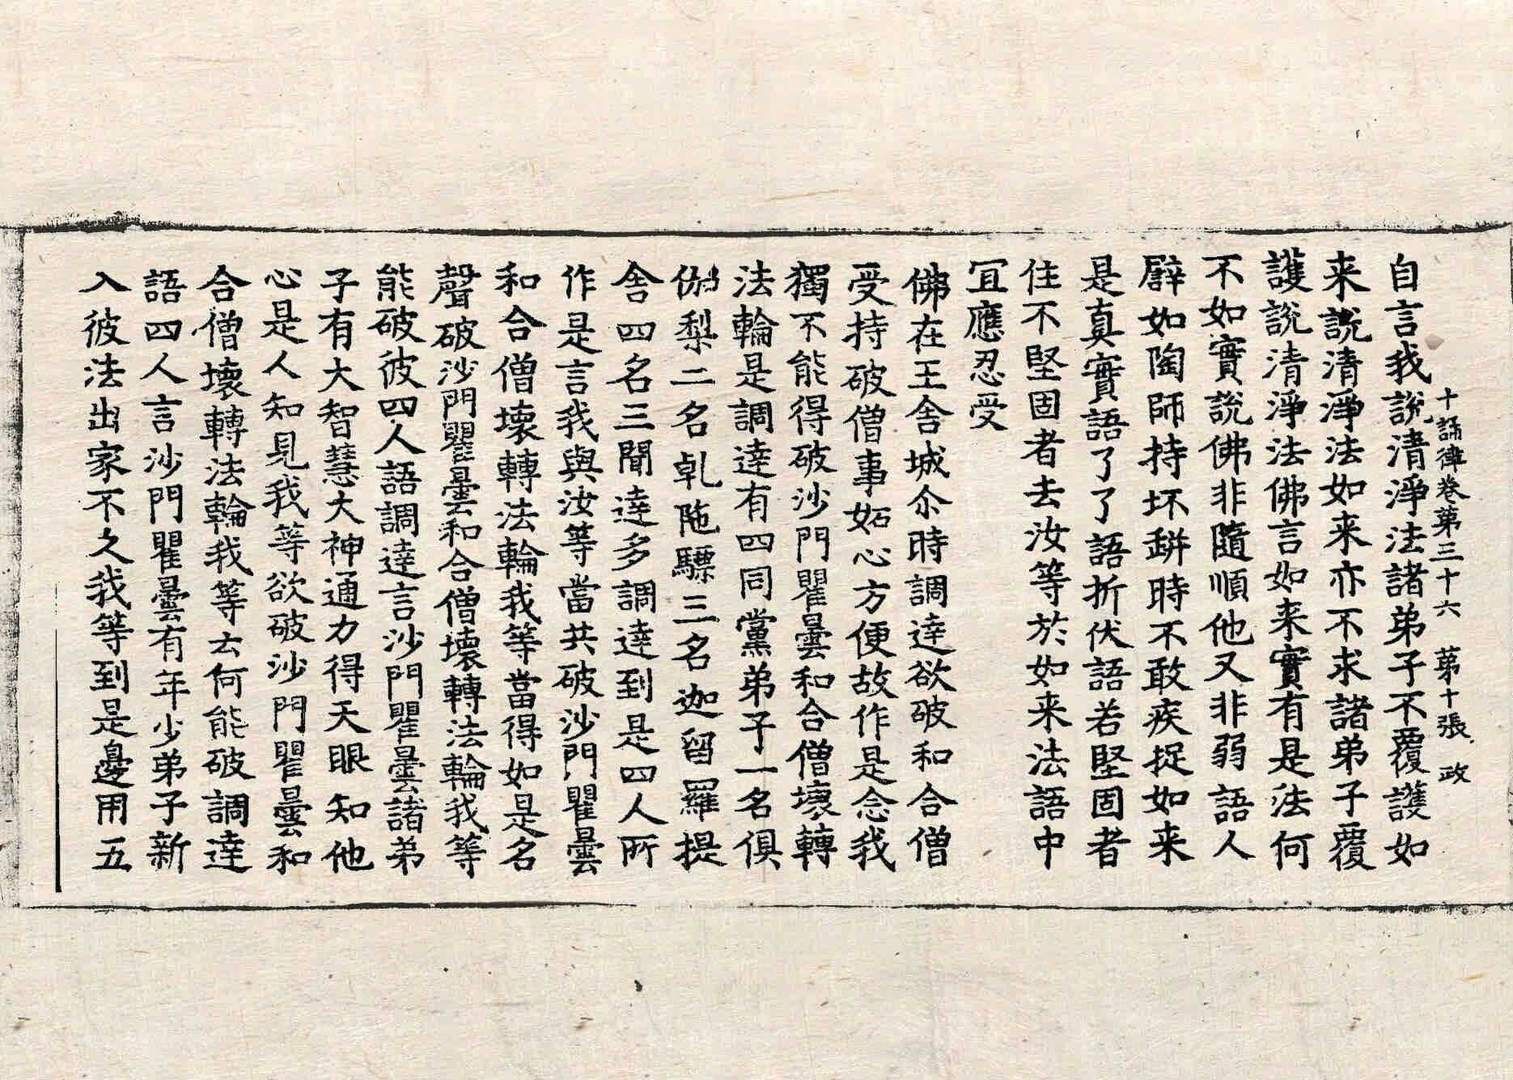 十誦律卷第三十六 第十張 政
自言我說清淨法諸弟子不覆護如
来說清淨法如来亦不求諸弟子覆
護說清淨法佛言如来實有是法何
不如實說佛非隨順他又非弱語人
辟如陶師持坏缾時不敢疾捉如来
是真實語了了語折伏語若堅固者
住不堅固者去汝等於如来法語中
冝應忍受
佛在王舍城尒時調達欲破和合僧
受持破僧事妬心方便故作是念我
獨不能得破沙門瞿曇和合僧壞轉
法輪是調達有四同黨弟子一名俱
伽梨二名乹陁驃三名迦留羅提
舍四名三聞達多調達到是四人所
作是言我與汝等當共破沙門瞿曇
和合僧壞轉法輪我等當得如是名
聲破沙門瞿曇和合僧壞轉法輪我等
能破彼四人語調達言沙門瞿曇諸弟
子有大智慧大神通力得天眼知他
心是人知見我等欲破沙門瞿曇和
合僧壞轉法輪我等云何能破調達
語四人言沙門瞿曇有年少弟子新
入彼法出家不久我等到是邊用五